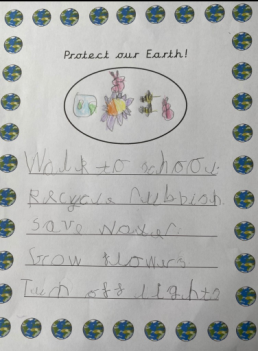 Protect our Earth!
Walk to school
Recycle rubbish
save water
Grow flowers
Turn off lights